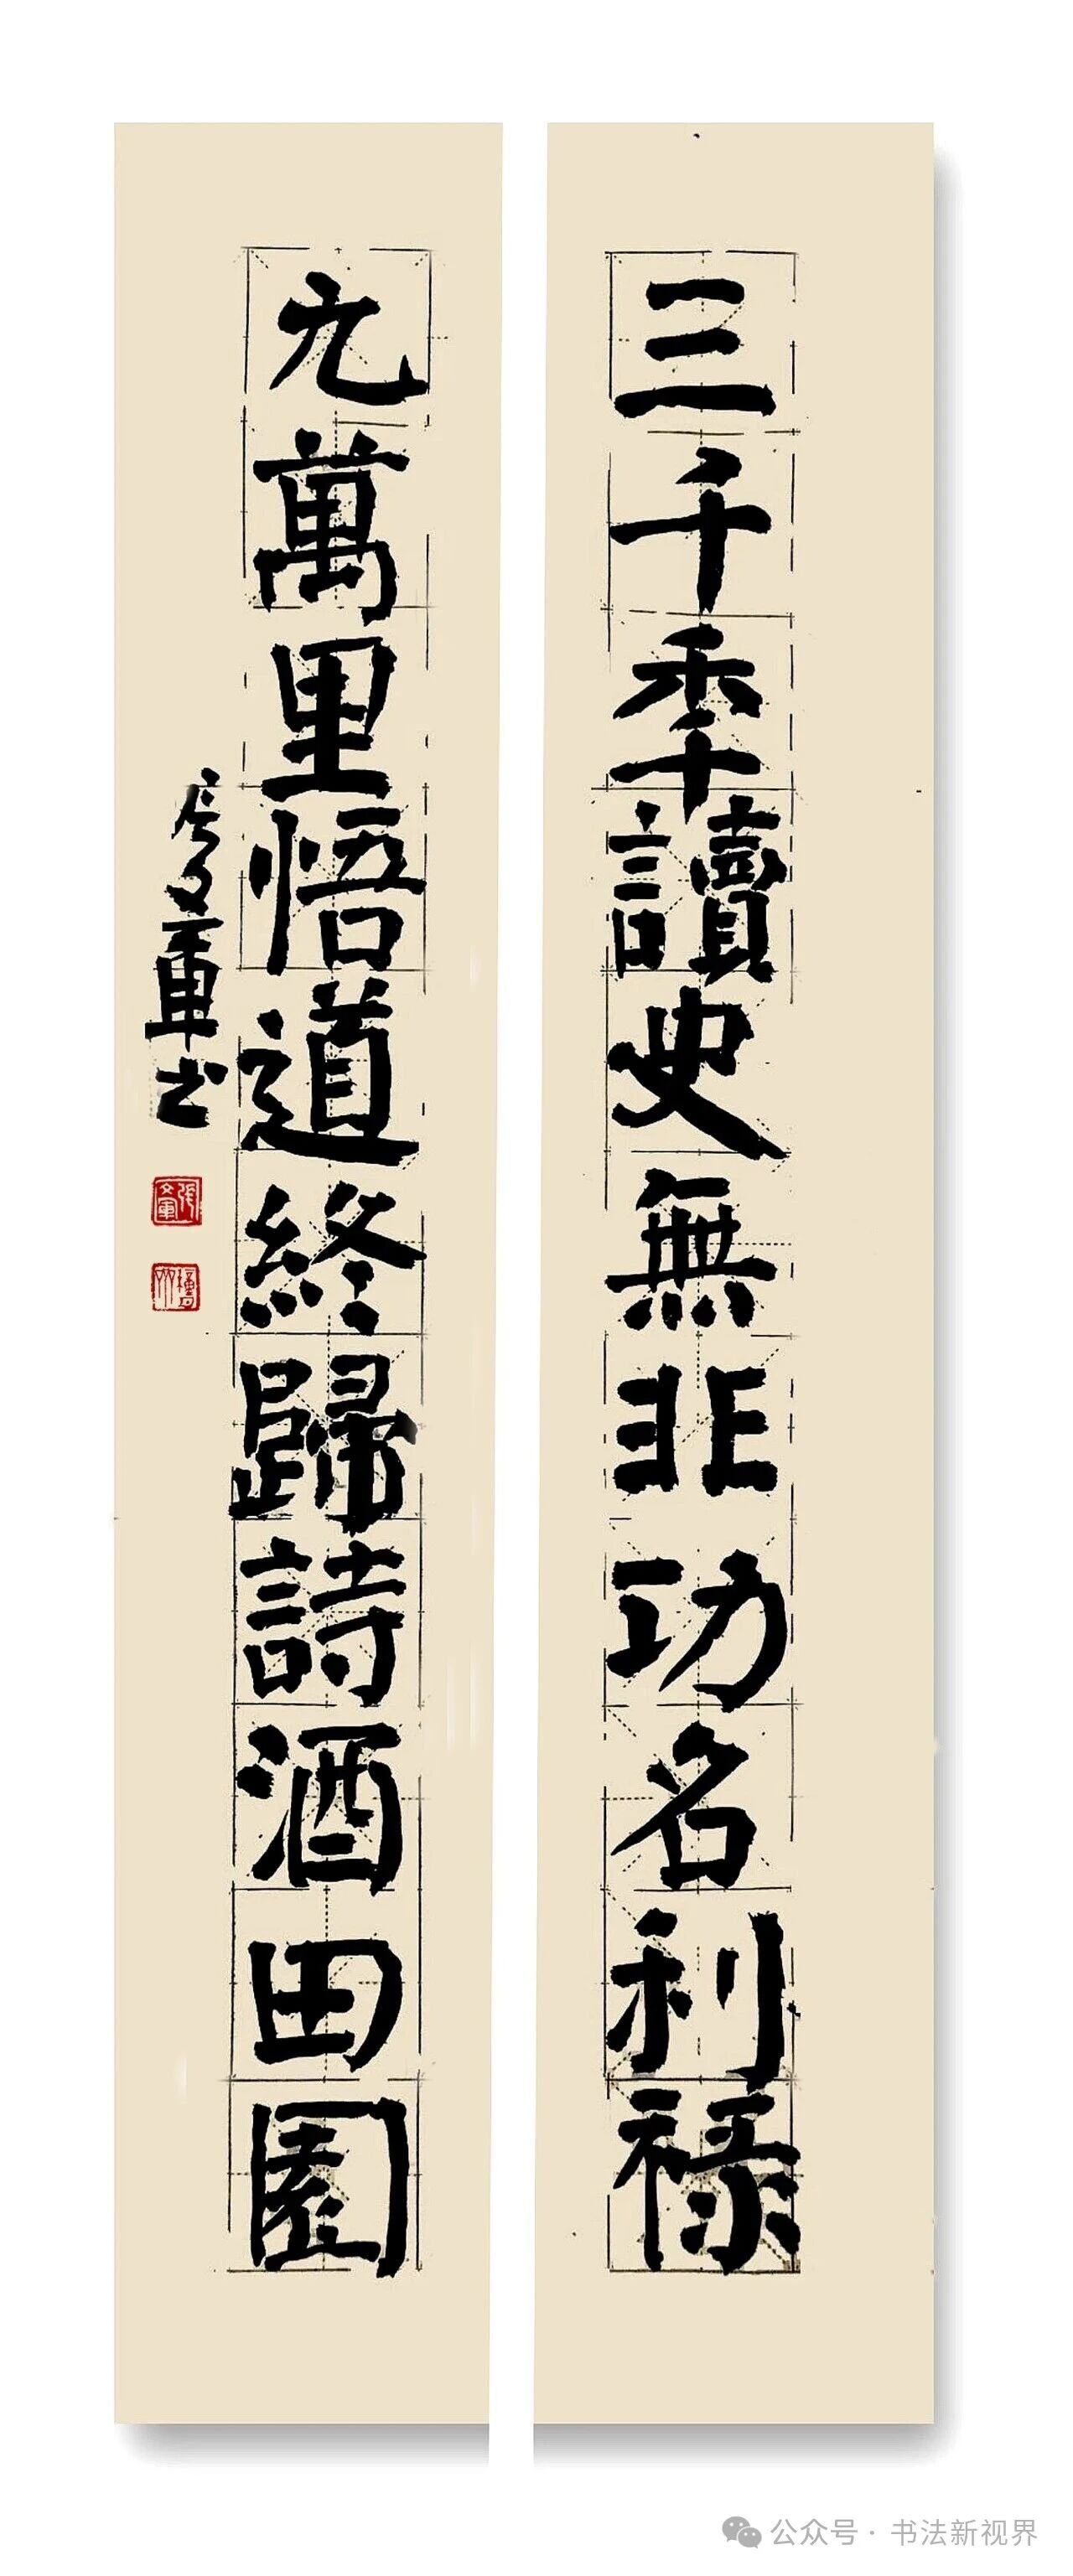 三千秊讀史無非功名利禄
九萬里悟道終歸詩酒田園
公众号 · 书法新视界